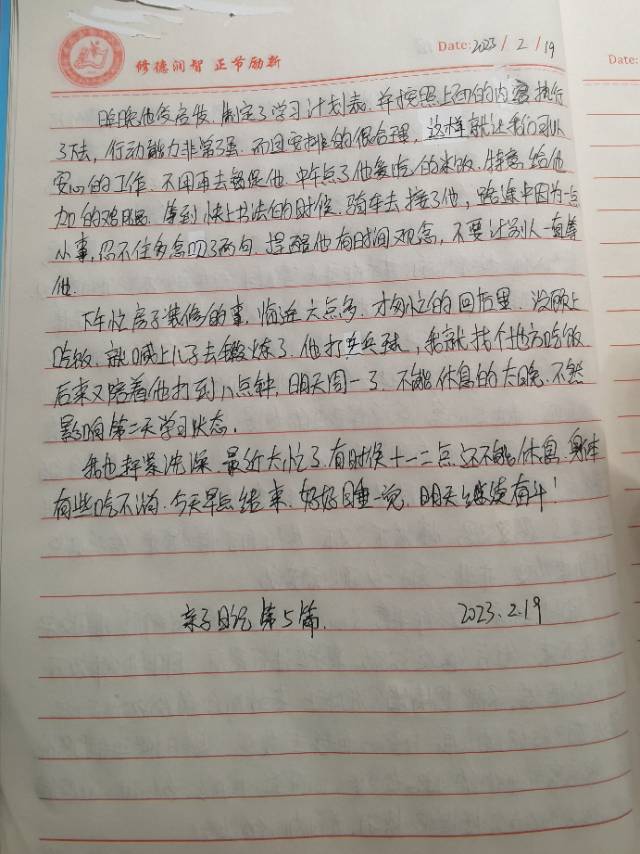 修德润智 正节励新
Date: 2023 / 2 / 19
Date:
昨晚他受启发,制定了学习计划表,并按照上面的内容执行
了下去,行动能力非常强,而且安排的很合理,这样就让我们可以
安心的工作,不用再去督促他,中午点了他爱吃的米饭,特意给他
加的鸡腿,等到快上书法的时候,骑车去接了他,路途中因为一点
小事,忍不住多念叨了两句,提醒他有时间观念,不要让别人一直等
他.
下午忙房子装修的事,临近六点多,才匆忙的回店里,没顾上
吃饭,就喊上儿子去锻炼了,他打乒乓球,我就找个地方吃饭
后来又陪着他打到八点钟,明天周一了,不能休息的太晚,不然
影响第二天学习状态.
我也赶紧洗澡,最近太忙了,有时候十一二点还不能休息,身体
有些吃不消.今天早点结束,好好睡一觉,明天继续奋斗!
亲子日记第5篇. 2023.2.19